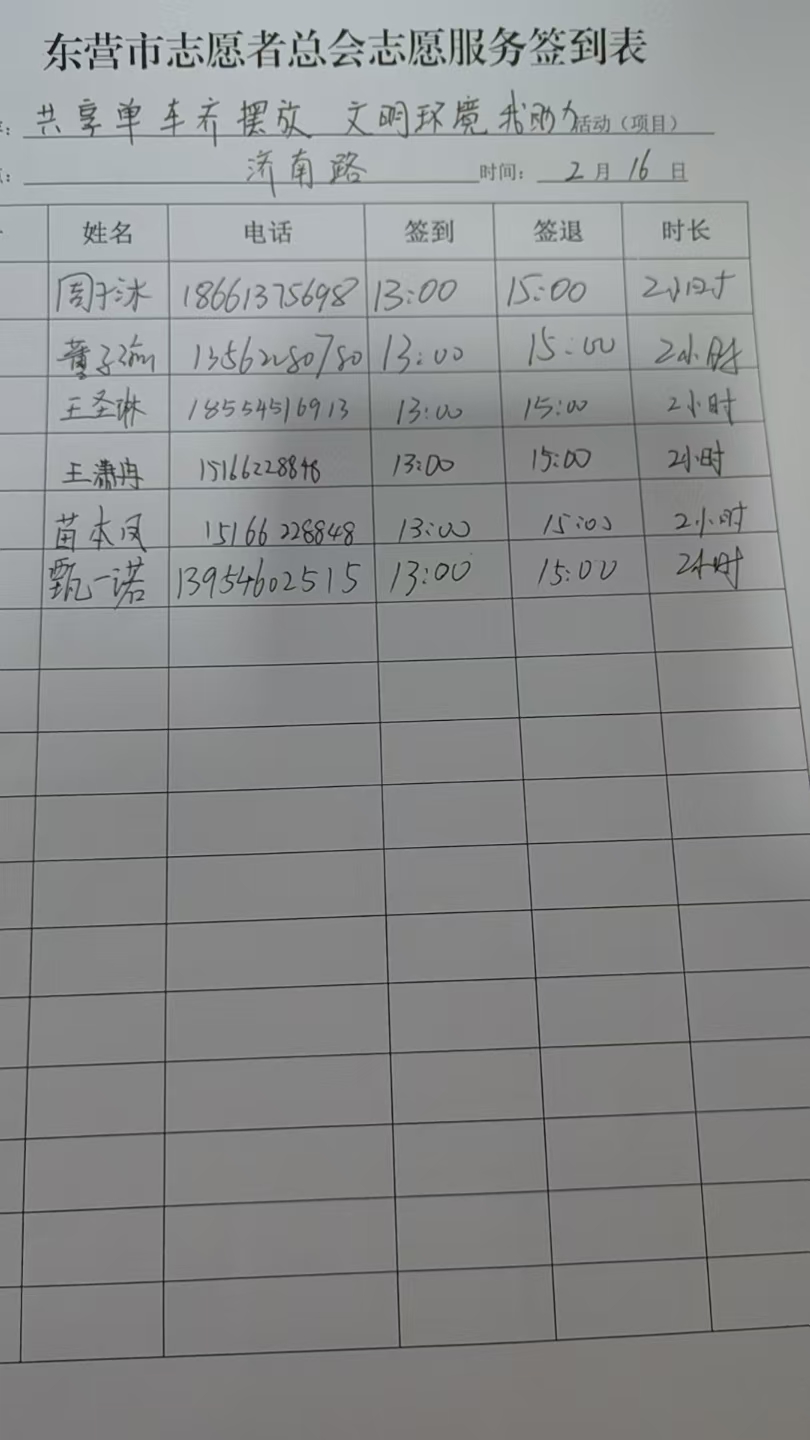 东营市志愿者总会志愿服务签到表
共享单车齐摆放 文明环境我助力活动（项目）
济南路 时间： 2 月 16 日
姓名 电话 签到 签退 时长
周子沐 18661375698 13:00 15:00 2小时
董子瑜 13562280780 13:00 15:00 2小时
王圣琳 18554516913 13:00 15:00 2小时
王潇冉 15166228848 13:00 15:00 2小时
苗本凤 15166228848 13:00 15:00 2小时
甄一诺 13954602515 13:00 15:00 2小时